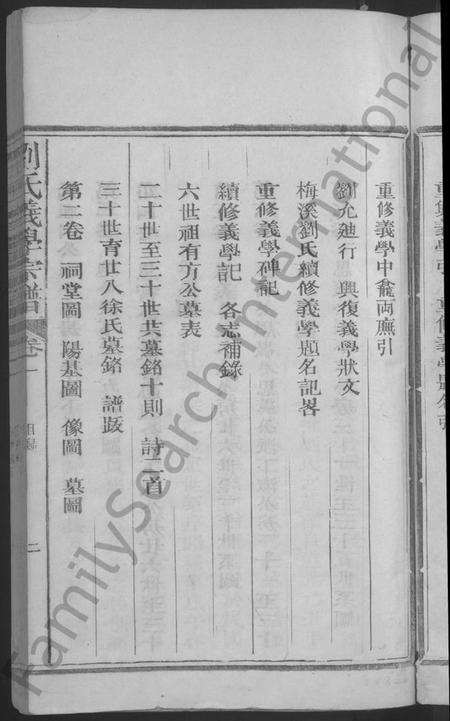 重修義學中龕両廡引
劉允迪行 興復義學狀文
梅溪劉氏續修義學題名記畧
重修義學碑記
續修義學記 各志補錄
六世祖有方公墓表
二十世至三十世共墓銘十則 詩二首
三十世育廿八徐氏墓銘 譜跋
第二卷 祠堂圖 陽基圖 像圖 墓圖
劉氏義學宗譜 卷一 目錄 二
FamilySearch International